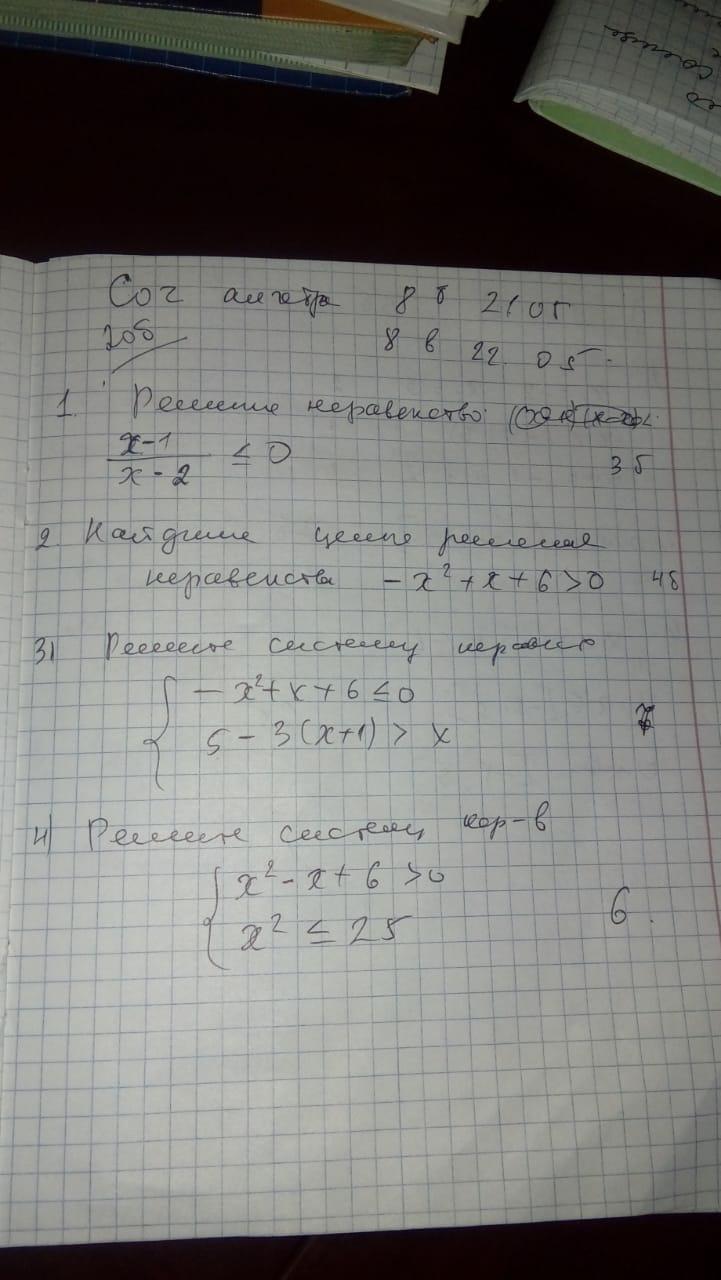 Соч алгебра 8 б 21 05
20б 8 в 22. 05.
1. Решите неравенство:
x-1
/
x-2 ≤ 0 3б
2. Найдите целые решения
неравенства -x²+x+6>0 4б
3) Решите систему неравенств
-x²+x+6≤0
5-3(x+1)>x 7
4) Решите систему нер-в
x²-x+6>0
x²≤25 6.